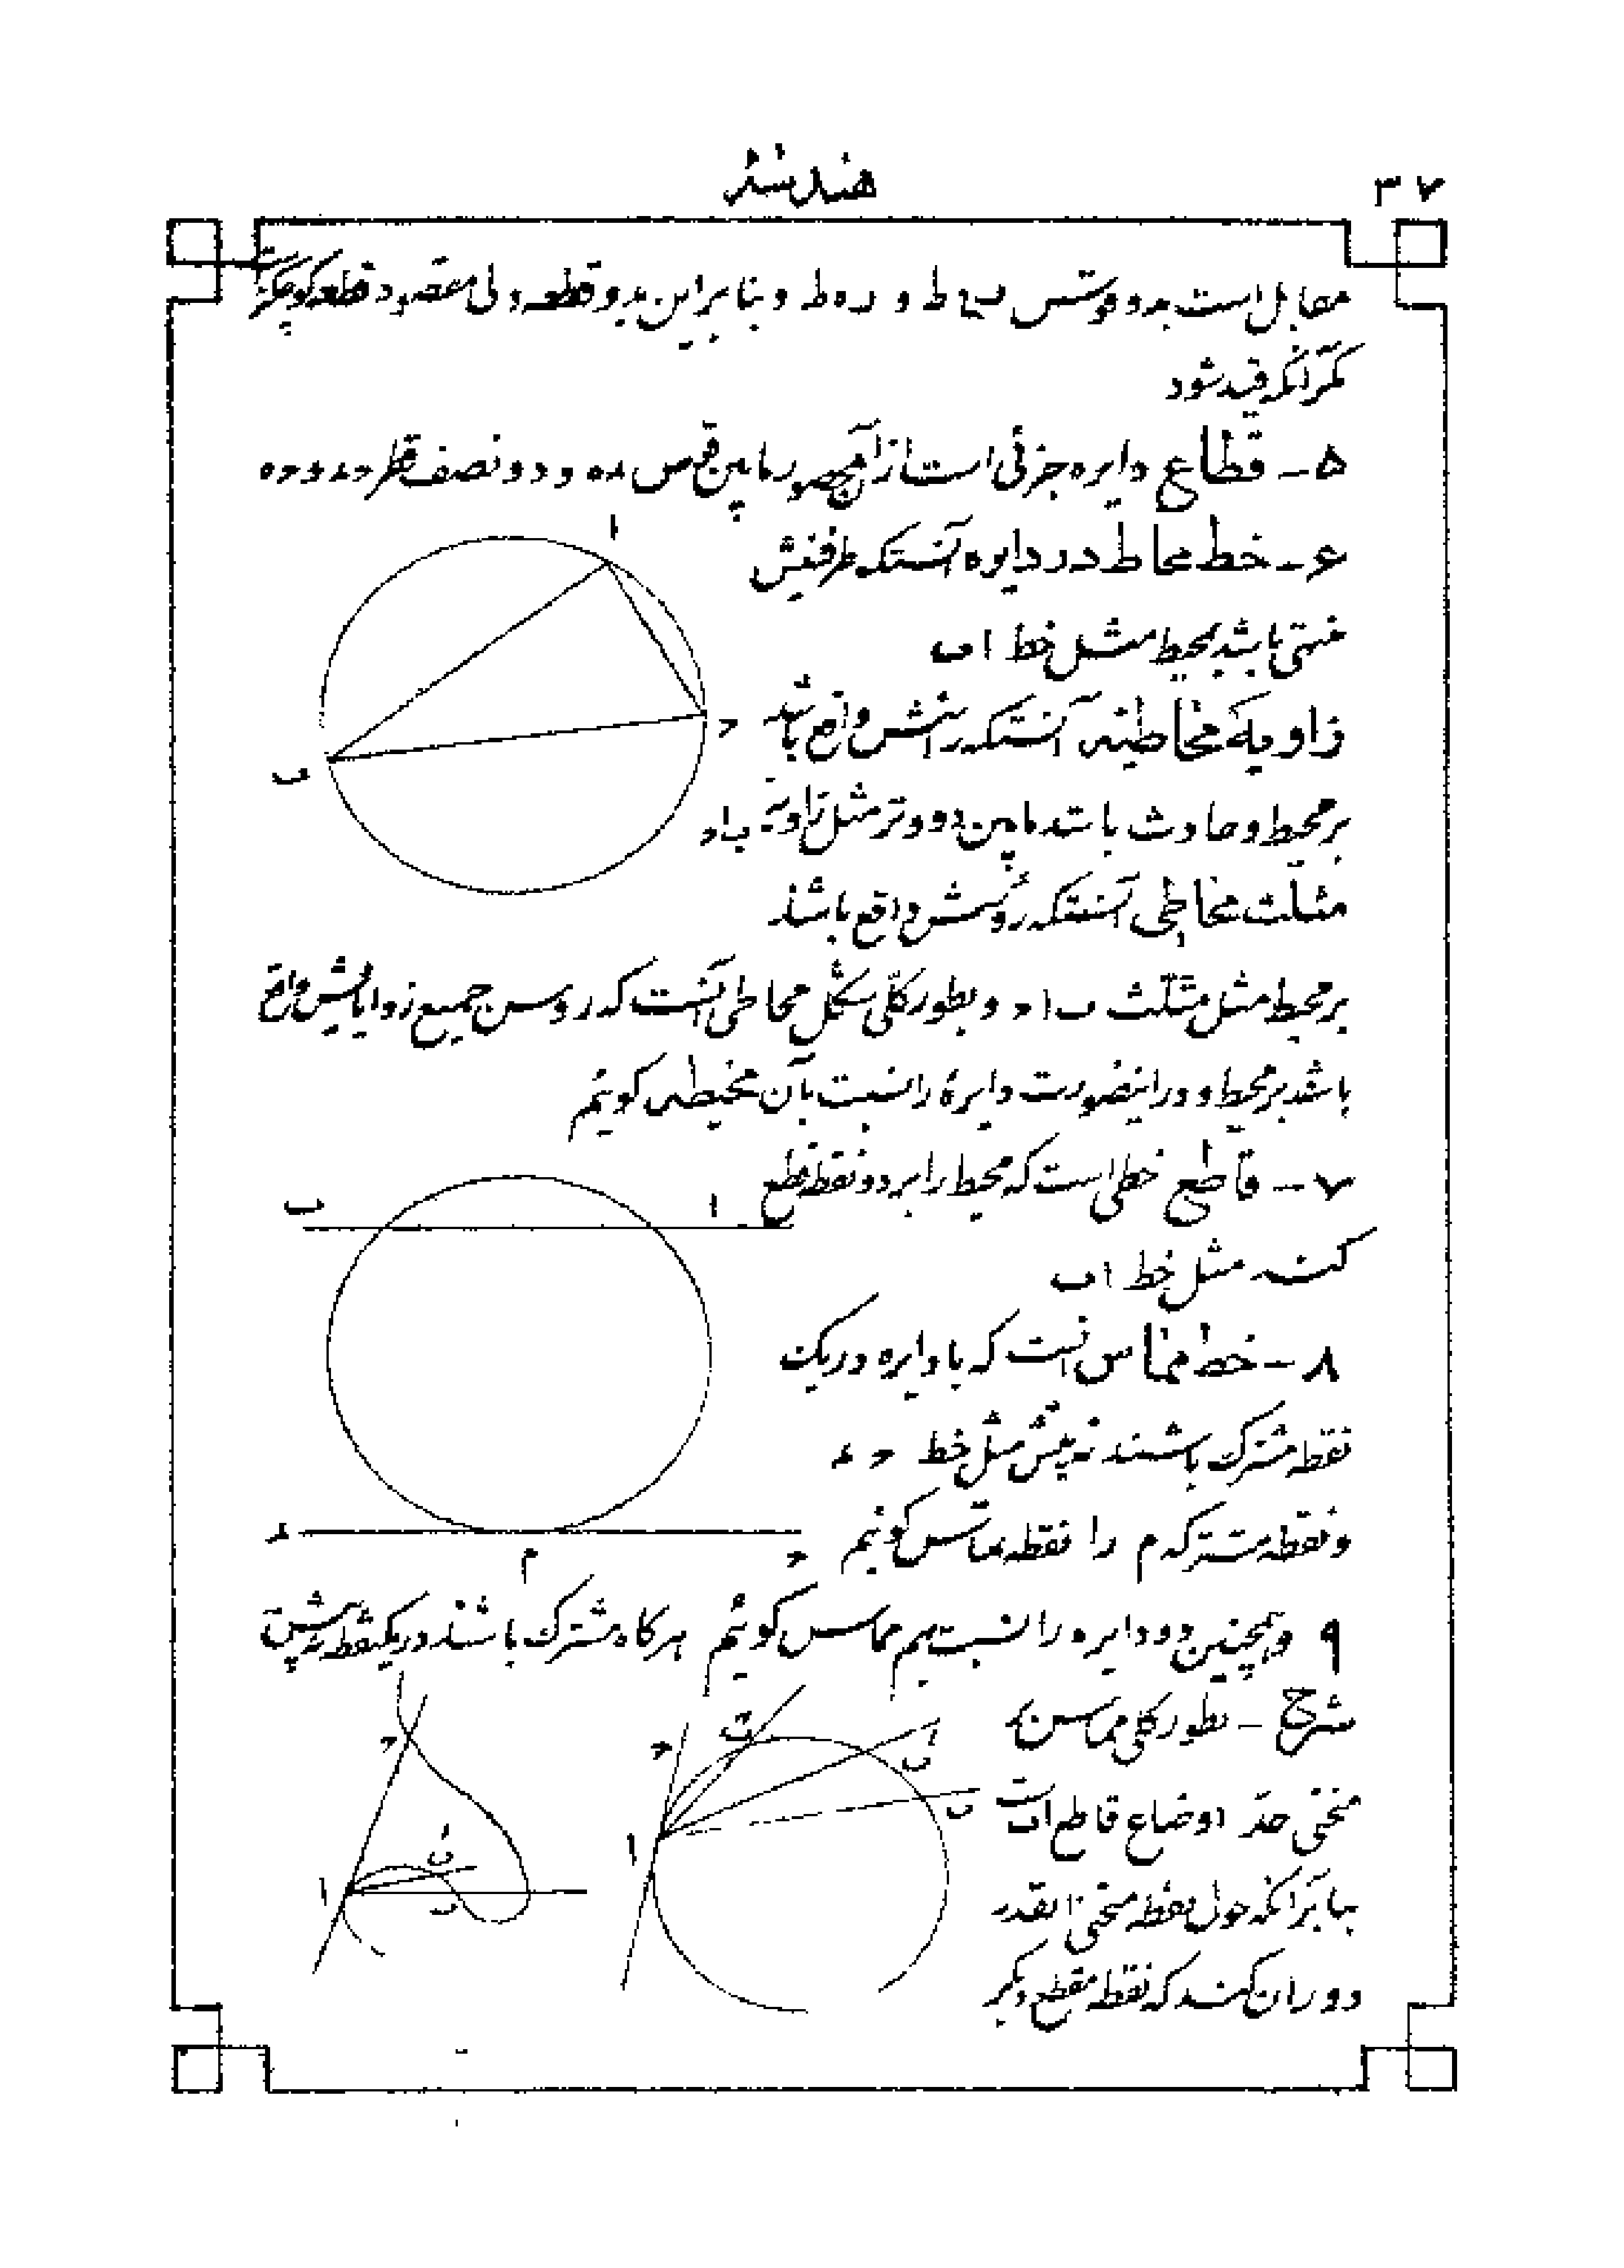 هندسه
۳۷
مقابل است بدو قوس ط و ره ط و بنابراین بدو قطعه ولی مقصود قطعه کوچکتر است
مگر آنکه قید شود
۵ – قطاع دایره جزئی است از آن محصور مابین قوس ءه و دو نصف قطر حء و حه
۶ – خط محاط در دایره آنستکه طرفینش
منتهی باشد بمحیط مثل خط اب
زاویهٔ محاطیه آنستکه رأسش واقع باشد
بر محیط و حادث باشد مابین دو وتر مثل زاویه باح
مثلث محاطی آنستکه رؤسش واقع باشد
بر محیط مثل مثلث باح و بطور کلی شکل محاطی آنست که روس جمیع زوایایش واقع
باشد بر محیط و در اینصورت دایره را نسبت بآن محیطی کوئیم
۷ – قاطع خطی است که محیط را بر دو نقطه قطع
کند مثل خط اب
۸ – خط مماس آنست که با دایره در یک
نقطه مشترک باشند نه بیش مثل خط حء
و نقطه مشترکه م را نقطه تماس کوئیم
۹ و همچنین دو دایره را نسبت بهم مماس کوئیم هر کاه مشترک باشند در یکنقطه نه بیش
شرح – بطور کلی مماس بر
منحنی حد اوضاع قاطع اب است
بنا بر آنکه حول نقطه منحنی آنقدر
دوران کند که نقطه مقطع دیگر
ا
ح
ب
ب
ا
ء
م
ح
ح
ا
بَ
ب
ح
بً
بَ
ب
ا